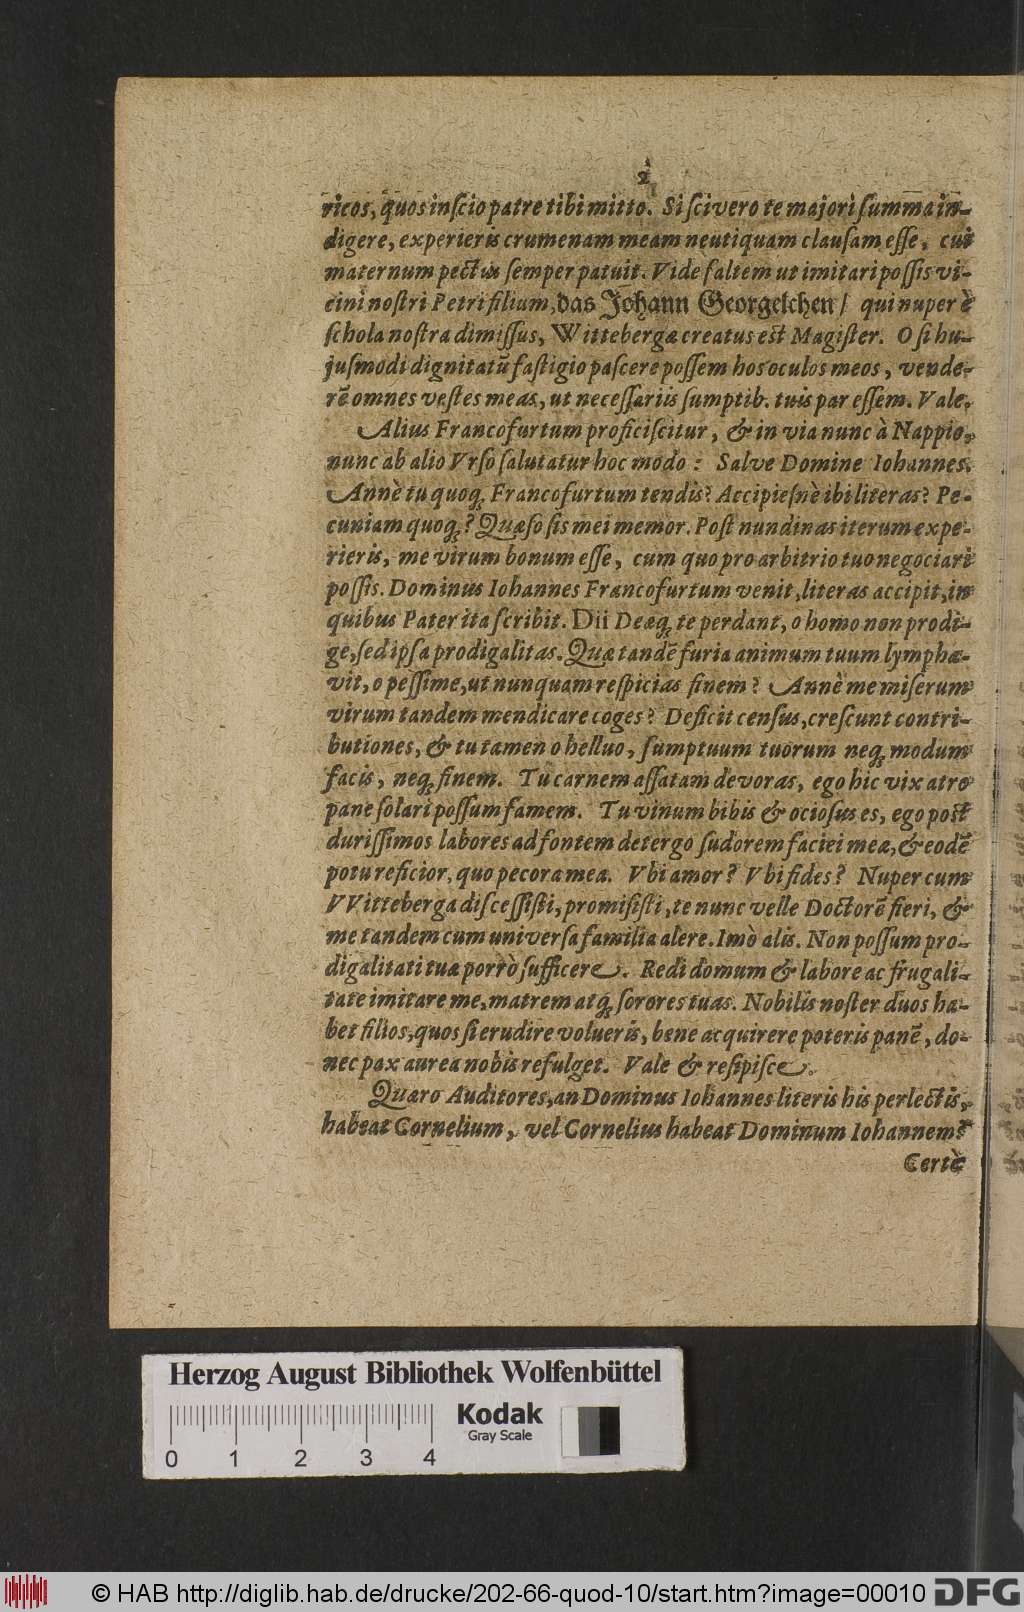 2
ricos, quos inſcio patre tibi mitto. Si ſcivero te majori ſumma in-
digere, experieris crumenam meam neutiquam clauſam eſſe, cui
maternum pectus ſemper patuit. Vide ſaltem ut imitari poſſis vi-
cini noſtri Petri filium, das Johann Georgelchen / qui nuper è
ſchola noſtra dimiſſus, Wittebergæ creatus est Magiſter. O ſi hu-
juſmodi dignitatũ faſtigio paſcere poſſem hos oculos meos, vende-
rẽ omnes veſtes meas, ut neceſſariis ſumptib. tuis par eſſem. Vale.
Alius Francofurtum proficiſcitur, & in via nunc à Nappio,
nunc ab alio Vrſo ſalutatur hoc modo: Salve Domine Iohannes.
Annè tu quoq; Francofurtum tendis? Accipieſnè ibi literas? Pe-
cuniam quoq;? Quæſo ſis mei memor. Poſt nundinas iterum expe-
rieris, me virum bonum eſſe, cum quo pro arbitrio tuo negociari
poſſis. Dominus Iohannes Francofurtum venit, literas accipit, in
quibus Pater ita ſcribit. Dii Deæq; te perdant, o homo non prodi-
ge, ſed ipſa prodigalitas. Quæ tandẽ furia animum tuum lymphæ-
vit, o peſſime, ut nunquam reſpicias finem? Annè me miſerum
virum tandem mendicare coges? Deficit cenſus, creſcunt contri-
butiones, & tu tamen o helluo, ſumptuum tuorum neq; modum
facis, neq; finem. Tu carnem aſſatam devoras, ego hic vix atro
pane ſolari poſſum famem. Tu vinum bibis & ocioſus es, ego poſt
duriſſimos labores ad fontem detergo ſudorem faciei meæ, & eodẽ
potu reficior, quo pecora mea. Vbi amor? Vbi fides? Nuper cum
VVitteberga diſceſſiſti, promiſiſti, te nunc velle Doctorẽ fieri, &
me tandem cum univerſa familia alere. Imò alis. Non poſſum pro-
digalitati tuæ porrò ſufficere. Redi domum & labore ac frugali-
tate imitare me, matrem atq; ſorores tuas. Nobilis noſter duos ha-
bet filios, quos ſi erudire volueris, bene acquirere poteris panẽ, do-
nec pax aurea nobis refulget. Vale & reſipiſce.
Quæro Auditores, an Dominus Iohannes literis his perlectis,
habeat Cornelium, vel Cornelius habeat Dominum Iohannem?
Certè
Herzog August Bibliothek Wolfenbüttel
0 1 2 3 4
Kodak
Gray Scale
© HAB http://diglib.hab.de/drucke/202-66-quod-10/start.htm?image=00010
DFG